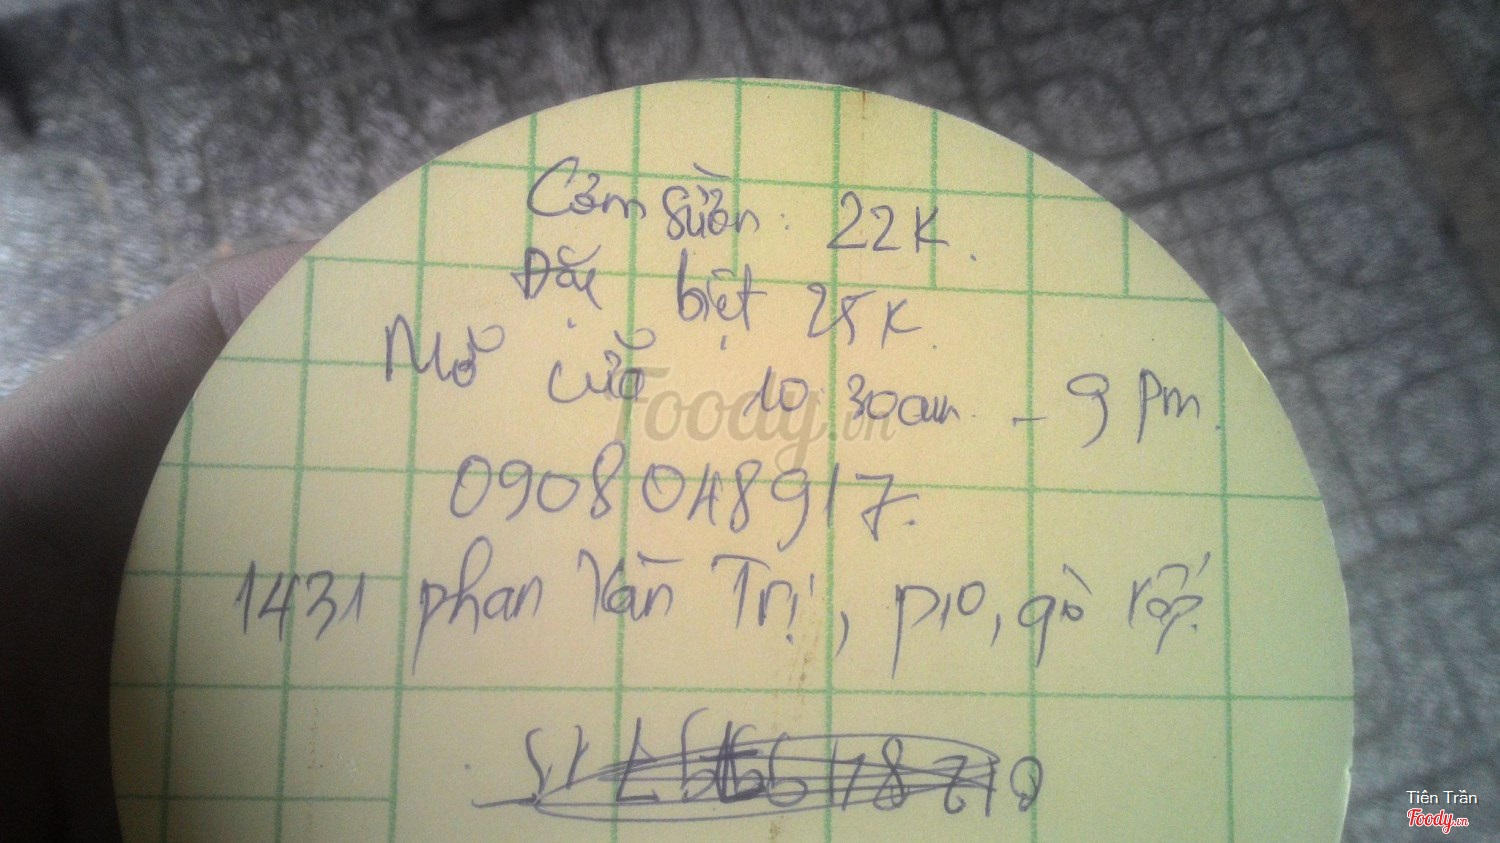 Cơm sườn: 22K.
Đặc biệt 25K.
Mở cửa 10:30am - 9 pm.
0908048917.
1431 phan Văn Trị, p10, gò vấp.
Foody.vn
Tiên Trần
Foody.vn